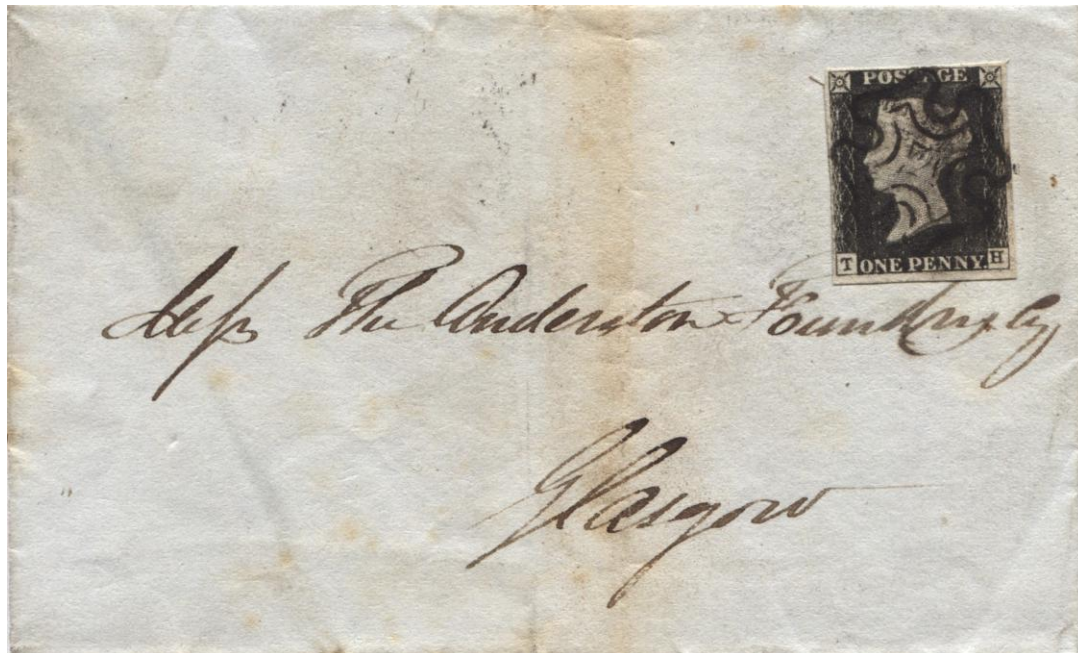 POSTAGE
T ONE PENNY. H
Mess The Anderston Foundry Cy
Glasgow